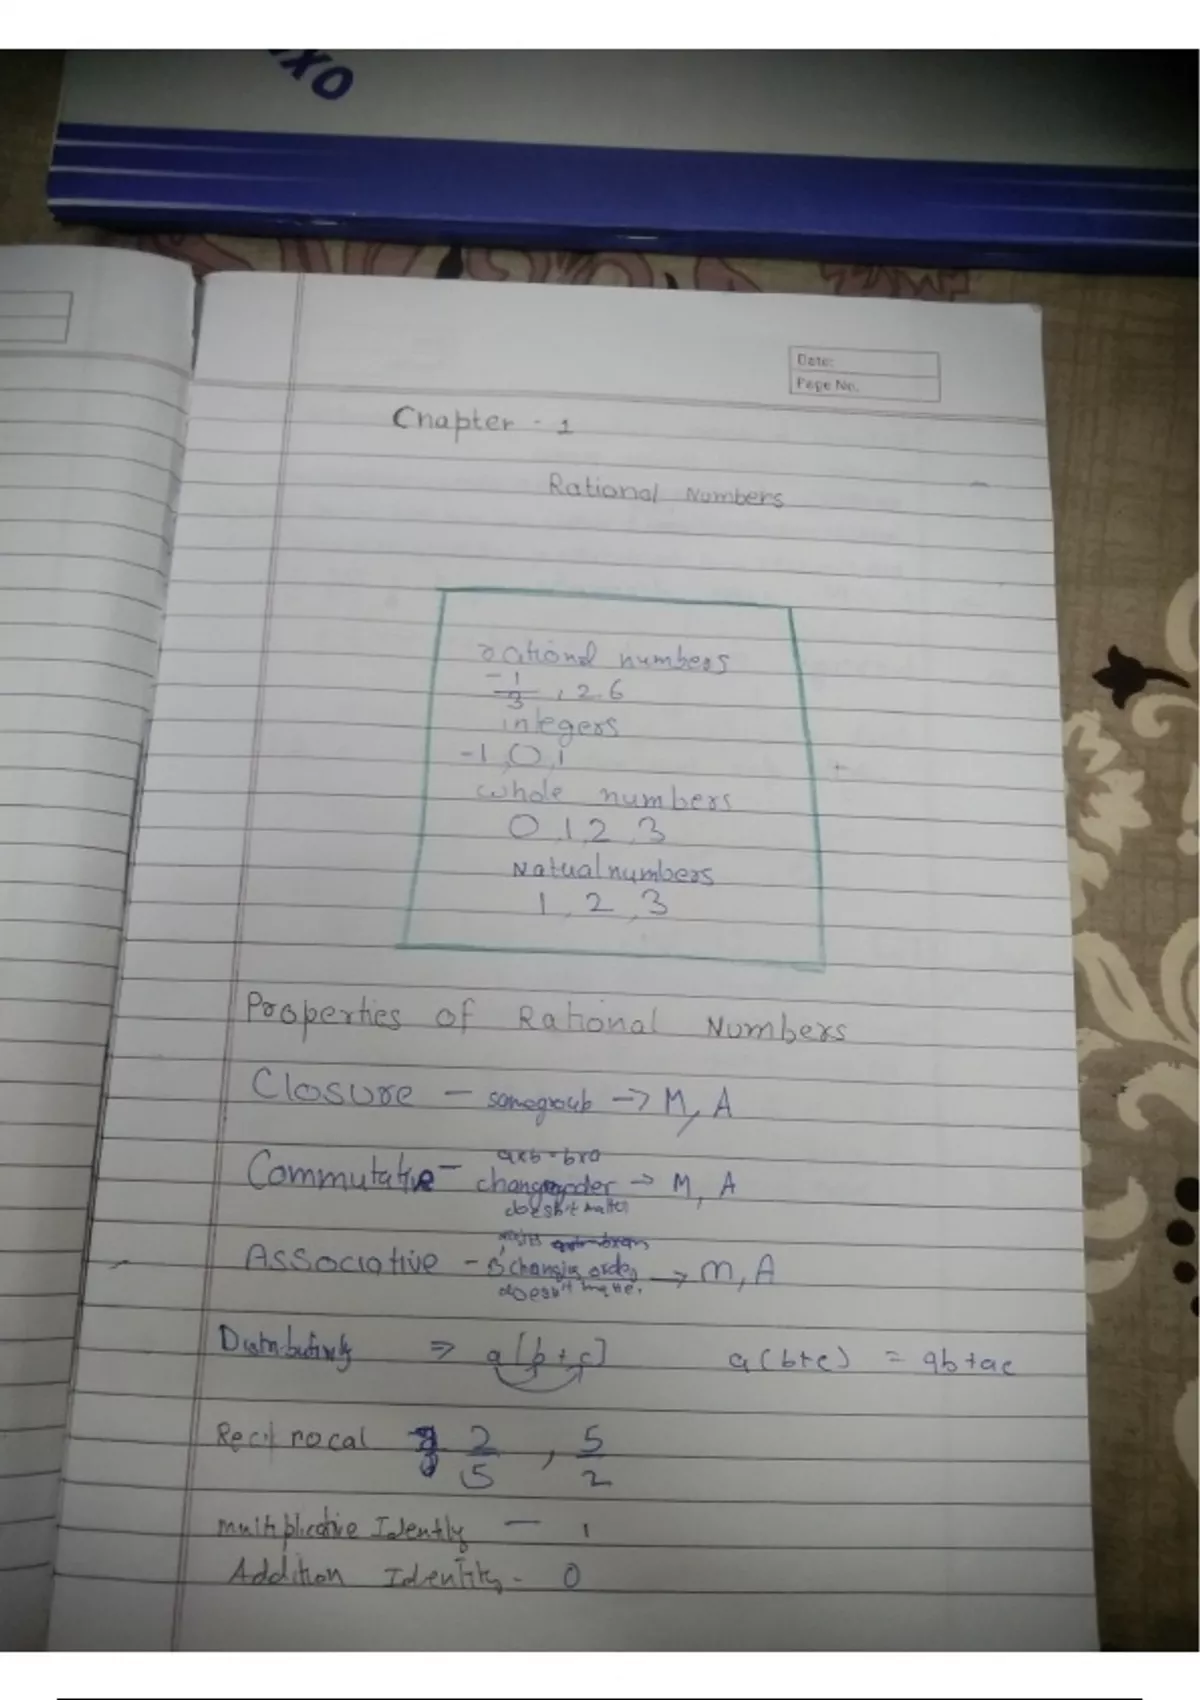 xo
Date:
Page No.
Chapter - 1
Rational Numbers
rational numbers
-1/3, 2.6
integers
-1, 0, 1
whole numbers
0, 1, 2, 3
Natual numbers
1, 2, 3
Properties of Rational Numbers
Closure - samegroub -> M, A
axb = bxa
Commutative - change order -> M, A
doesn't matter
Associative - changing order -> M, A
doesn't matter
Distributively => a[b+c] a(b+c) = ab+ac
Reciprocal 2/5, 5/2
multiplicative Identity - 1
Addition Identity - 0